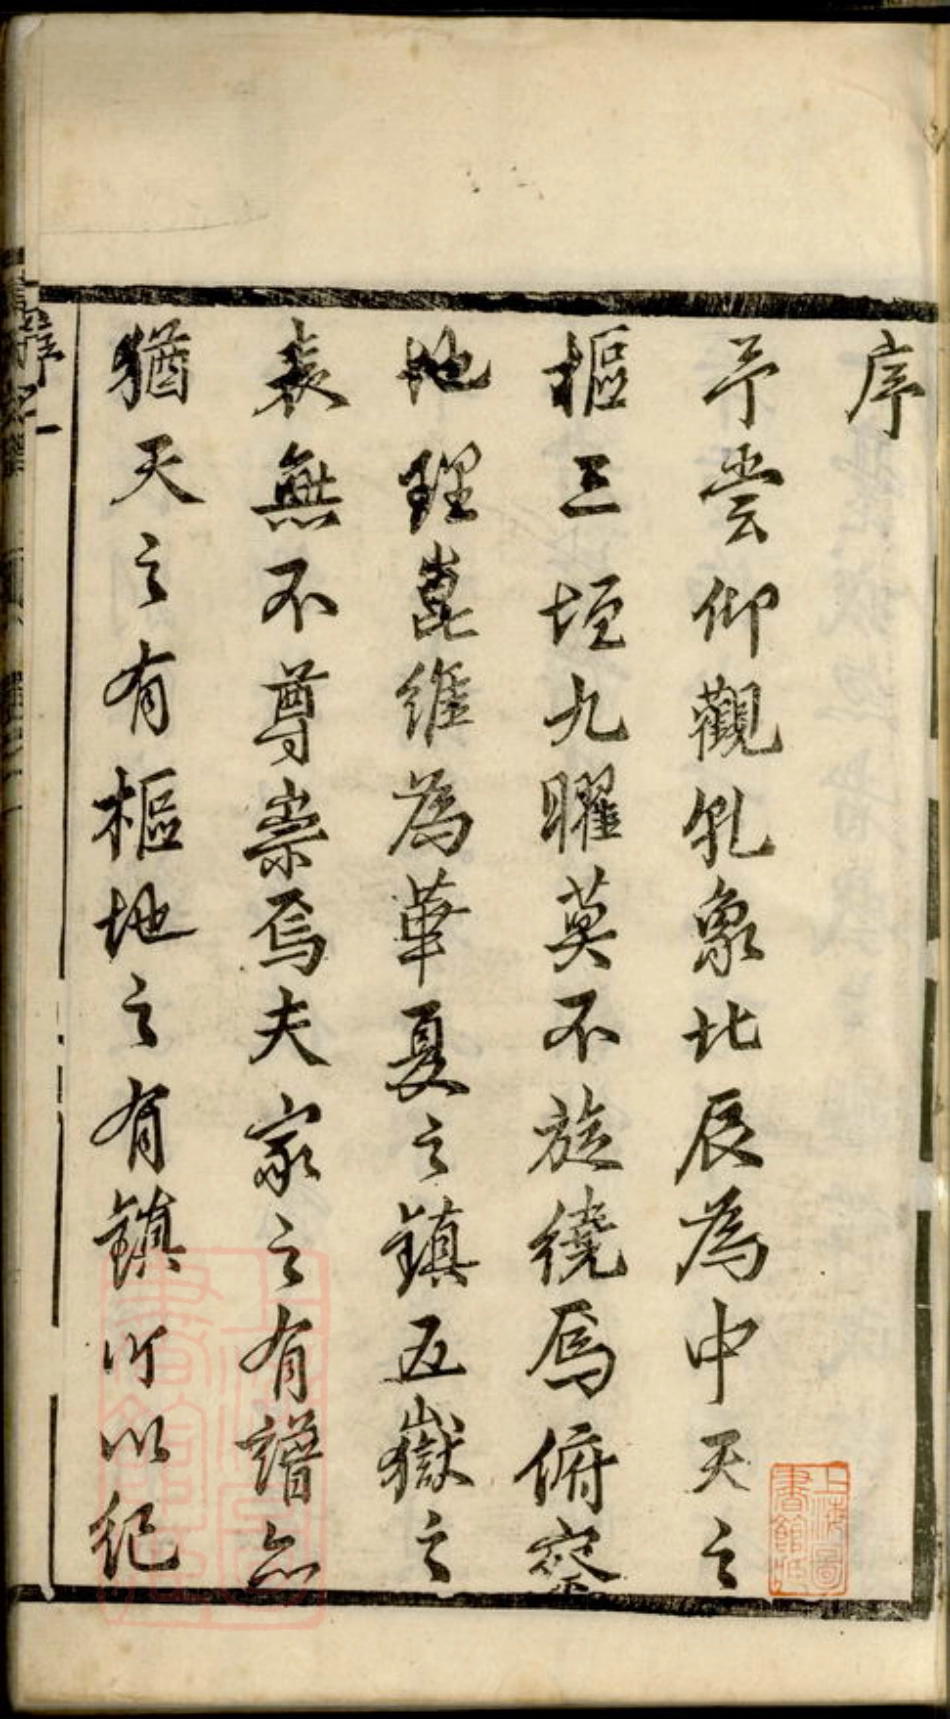 序
予嘗仰觀乾象北辰為中天之
樞三垣九曜莫不旋繞焉俯察
地理崑維為華夏之鎮五嶽之
表無不尊崇焉夫家之有譜亦
猶天之有樞地之有鎮所以紀
上海圖
書館藏